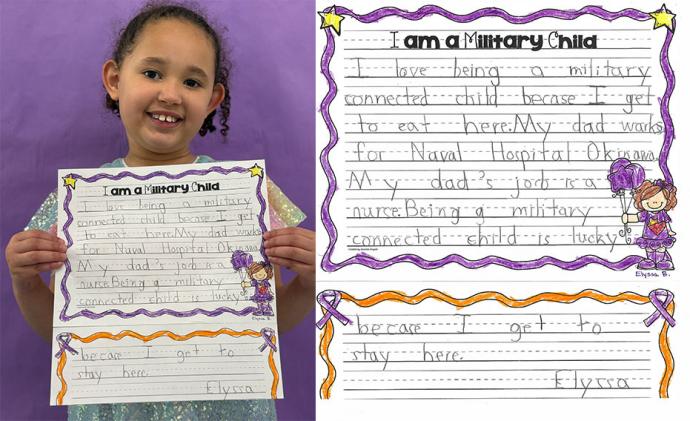 I am a Military Child
I love being a military
connected child becase I get
to eat here.My dad works
for Naval Hospital Okinawa.
My dad's job is a
nurse.Being g military
connected child is lucky
Elyssa B.
becare I get to
stay here.
Elyssa
I am a Military Child
I love being a military
connected child becase I get
to eat here.My dad works
for Naval Hospital Okinawa.
My dad's job is a
nurse.Being g military
connected child is lucky
Elyssa B.
becare I get to
stay here.
Elyssa